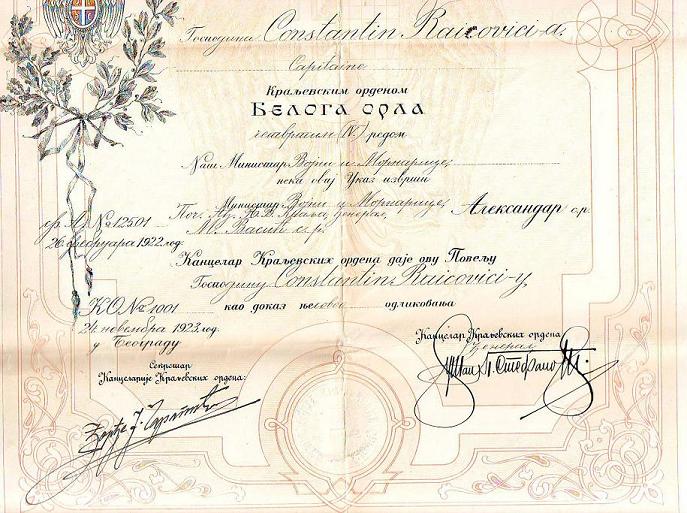 Господина Constantin Raicovici-a.
Capitaine
Краљевским орденом
БЕЛОГА ОРЛА
четвртим (IV) редом
Наш Министар Војни и Морнарице,
нека овај Указ изврши
Министар Војни и Морнарице,
Поч. Ађ. Њ. В. Краља, генерал,
М. Васић с.р.
Александар с.р.
А. № 12501
26. фебруара 1922. год.
Канцелар Краљевских ордена даје ову Повељу
Господину Constantin Raicovici-у
КО № 1001 као доказ његовог одликовања
24. новембра 1923. год.
у Београду
Канцелар Краљевских ордена
генерал
Секретар
Канцеларије Краљевских ордена: